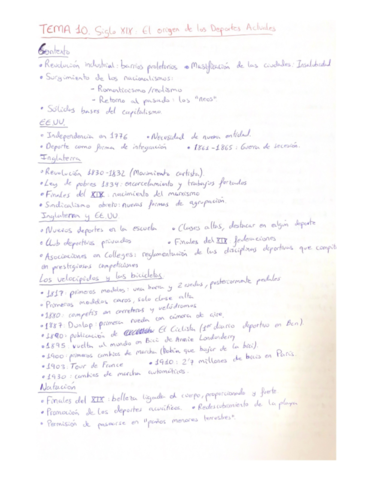 TEMA 10. Siglo XIX: El origen de los Deportes Actuales
Contexto
• Revolución industrial: barrios proletarios • Masificación de las ciudades: Insalubridad
• Surgimiento de los nacionalismos:
- Romanticismo/realismo
- Retorno al pasado: los "neos"
• Sólidas bases del capitalismo
EE.UU.
• Independencia en 1776 • Necesidad de nueva entidad
• Deporte como forma de integración • 1861-1865: Guerra de secesión
Inglaterra
• Revolución 1830-1832 (Movimiento cartista)
• Ley de pobres 1834: encarcelamiento y trabajos forzados
• Finales del XIX: nacimiento del marxismo
• Sindicalismo obrero: nuevas formas de agrupación
Inglaterra y EE.UU
• Nuevos deportes en la escuela • Clases altas, destacar en algún deporte
• Club deportivos privados • Finales del XIX federaciones
• Asociaciones en Colleges: reglamentación de las disciplinas deportivas que compit
en prestigiosas competiciones
Los velocípedos y las bicicletas
• 1817: primeros modelos: una barra y 2 ruedas, posteriormente pedales
• Primeros modelos caros, solo clase alta
• 1880: competís en carreteras y velódromos
• 1887: Dunlop: primera rueda con cámara de aire
• 1890: publicación de El Ciclista (1er diario deportivo en Bcn)
• 1895: vuelta al mundo en Bici de Annie Londonderry
• 1900: primeros cambios de marcha (había que bajar de la bici)
• 1903: Tour de France • 1920: 27 millones de bicis en París
• 1930: cambios de marcha automáticos.
Natación
• Finales del XIX: belleza ligada al cuerpo, proporcionado y fuerte
• Promoción de los deportes náuticos • Redescubrimiento de la playa
• Permisión de ponerse en "paños menores terrestres".